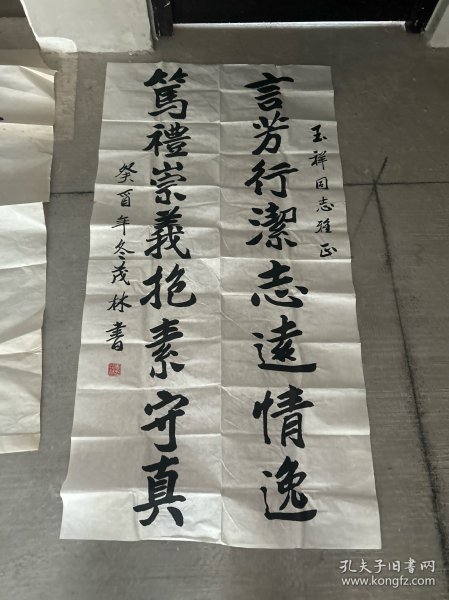 玉祥同志雅正
言芳行潔志遠情逸
篤禮崇義抱素守真
癸酉年冬茂林書
孔夫子旧书网
www.kongfz.com